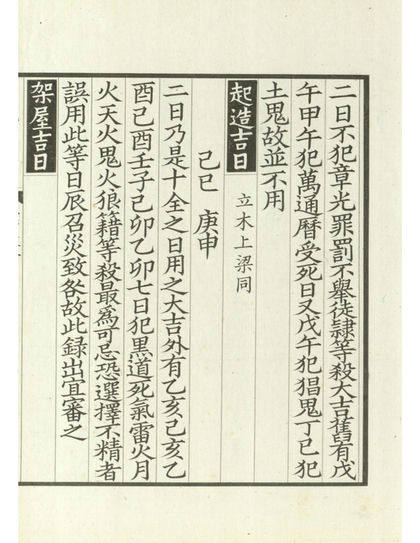 二日不犯章光罪罰不舉徒隷等殺大吉舊有戊
午甲午犯萬通曆受死日又戊午犯猖鬼丁巳犯
土鬼故並不用
起造吉日 立木上梁同
己巳 庚申
二日乃是十全之日用之大吉外有乙亥己亥乙
酉己酉壬子己卯乙卯七日犯黒道死氣雷火月
火天火鬼火狼籍等殺最為可忌恐選擇不精者
誤用此等日辰召災致咎故此録出宜審之
架屋吉日